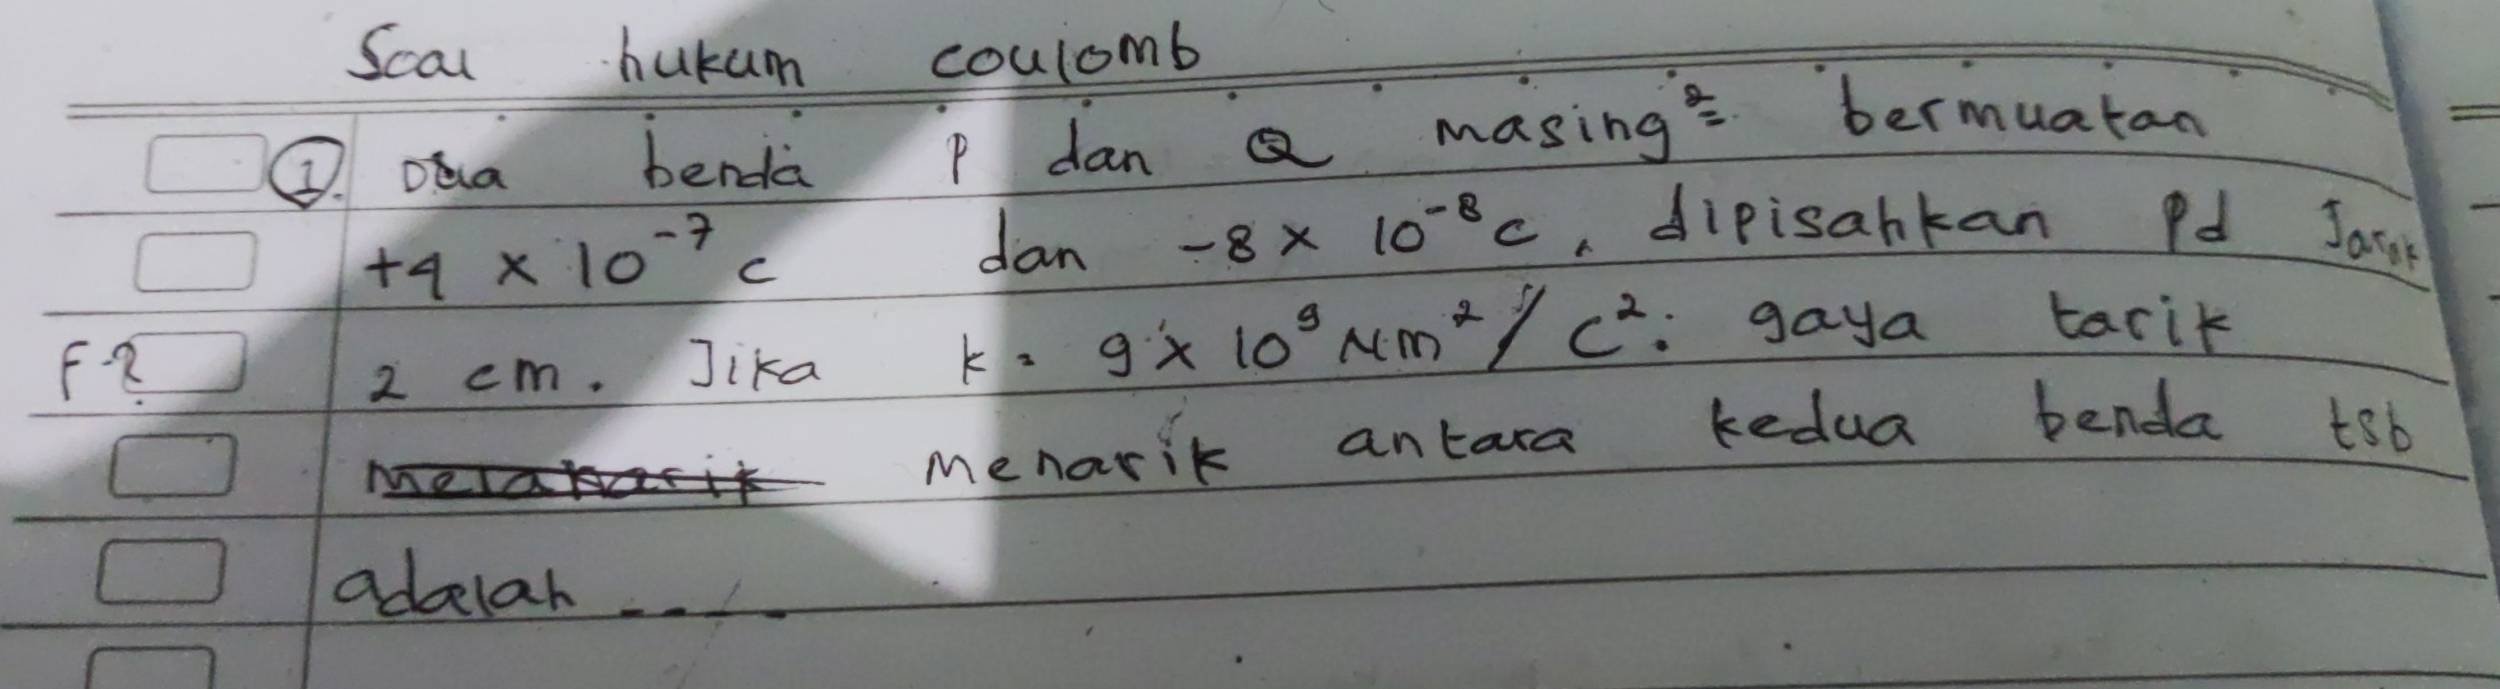 Soal hukum coulomb
1. Dua benda P dan Q masing² bermuatan
+4 × 10⁻⁷ c dan -8 × 10⁻⁸ c, dipisahkan pd Jarak
F? 2 cm. Jika k = 9 × 10⁹ Nm²/C². gaya tarik
menarik antara kedua benda tsb
adalah ....